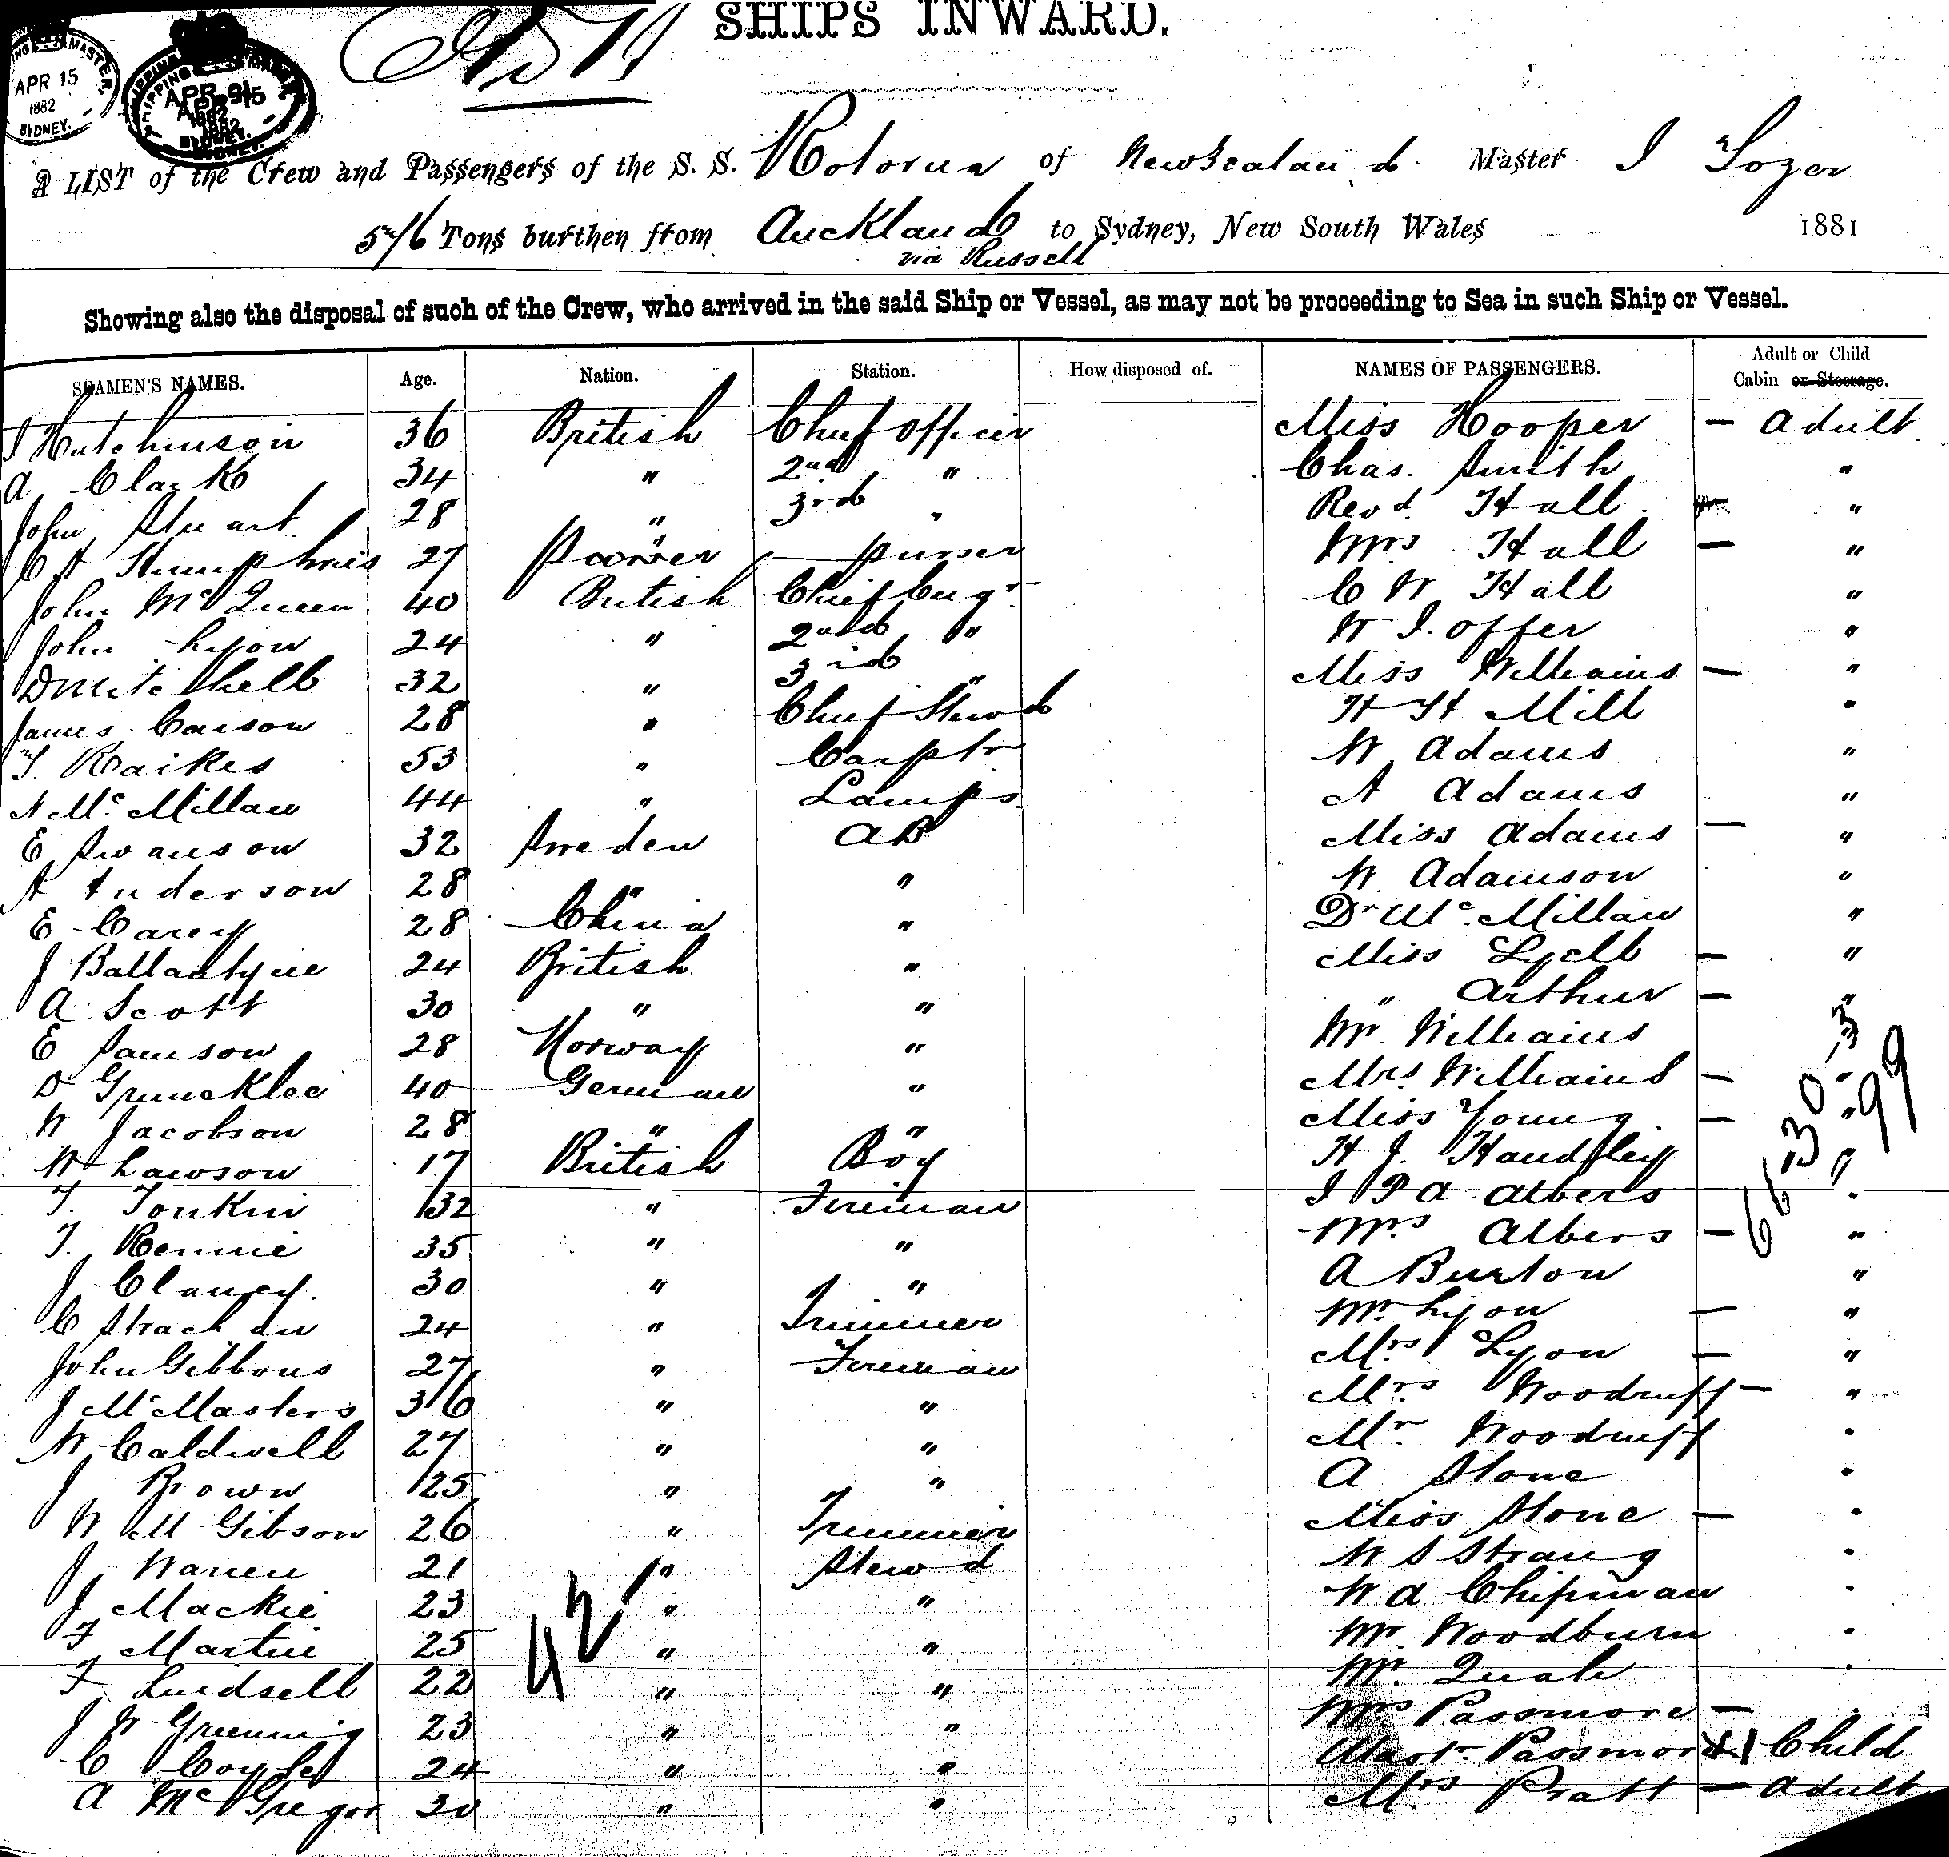 SHIPS INWARD.
APR 15
1882
SYDNEY.
A LIST of the Crew and Passengers of the S. S. Rotorua of New Zealand. Master
546 Tons burthen from Auckland to Sydney, New South Wales 1881
via Russell
Showing also the disposal of such of the Crew, who arrived in the said Ship or Vessel, as may not be proceeding to Sea in such Ship or Vessel.
SEAMEN'S NAMES. Age. Nation. Station. How disposed of. NAMES OF PASSENGERS. Adult or Child
Cabin or Steerage.
J Hutchinson 36 British Chief Officer Miss Hooper — Adult
A Clark 34 " 2nd " Chas. Smith "
John Stuart 28 " 3rd " Revd. Hall "
C A Humphries 27 " Purser Mrs Hall — "
John McQueen 40 British Chief Engr C W Hall "
John Lyon 24 " 2nd " W J. Offer "
D Mitchell 32 " 3rd " Miss Williams — "
James Carson 28 " Chief Stewd H H Mill "
T. Raikes 53 " Carptr W Adams "
N McMillan 44 " Lamps A Adams "
E Swanson 32 Sweden AB Miss Adams — "
A Anderson 28 " " W Adamson "
E Carey 28 China " Dr McMillan "
J Ballantyne 24 British " Miss Lyell — "
A Scott 30 " " " Arthur — "
E Samson 28 Norway " Mr Williams
D 40 German " Mrs Williams — "
W Jacobson 28 " " Miss Young — "
W Lawson 17 British Boy H J. Handley "
T. Tonkin 32 " Fireman J P A Albers "
T. Rennie 35 " " Mrs Albers — "
J Clancy. 30 " " A Burton "
C Strachan 24 " Trimmer Mr Lyon — "
John Gibbons 27 " Fireman Mrs Lyon — "
J McMasters 36 " " Mrs Woodruff — "
W Caldwell 27 " " Mr Woodruff "
J Brown 25 " " A Stone "
W M Gibson 26 " Trimmer Miss Stone — "
J Warren 21 " Stewd W S Strang "
J Mackie 23 " " W A Chipman "
F Martin 25 " " Mr Woodburn "
F Lindsell 22 " " Mr. Quah "
J W Greening 23 " " Mrs Passmore — "
C 24 " " Mastr Passmore 1 Child
A McGregor 30 " " Mrs Pratt — Adult
42
66
30
3
99